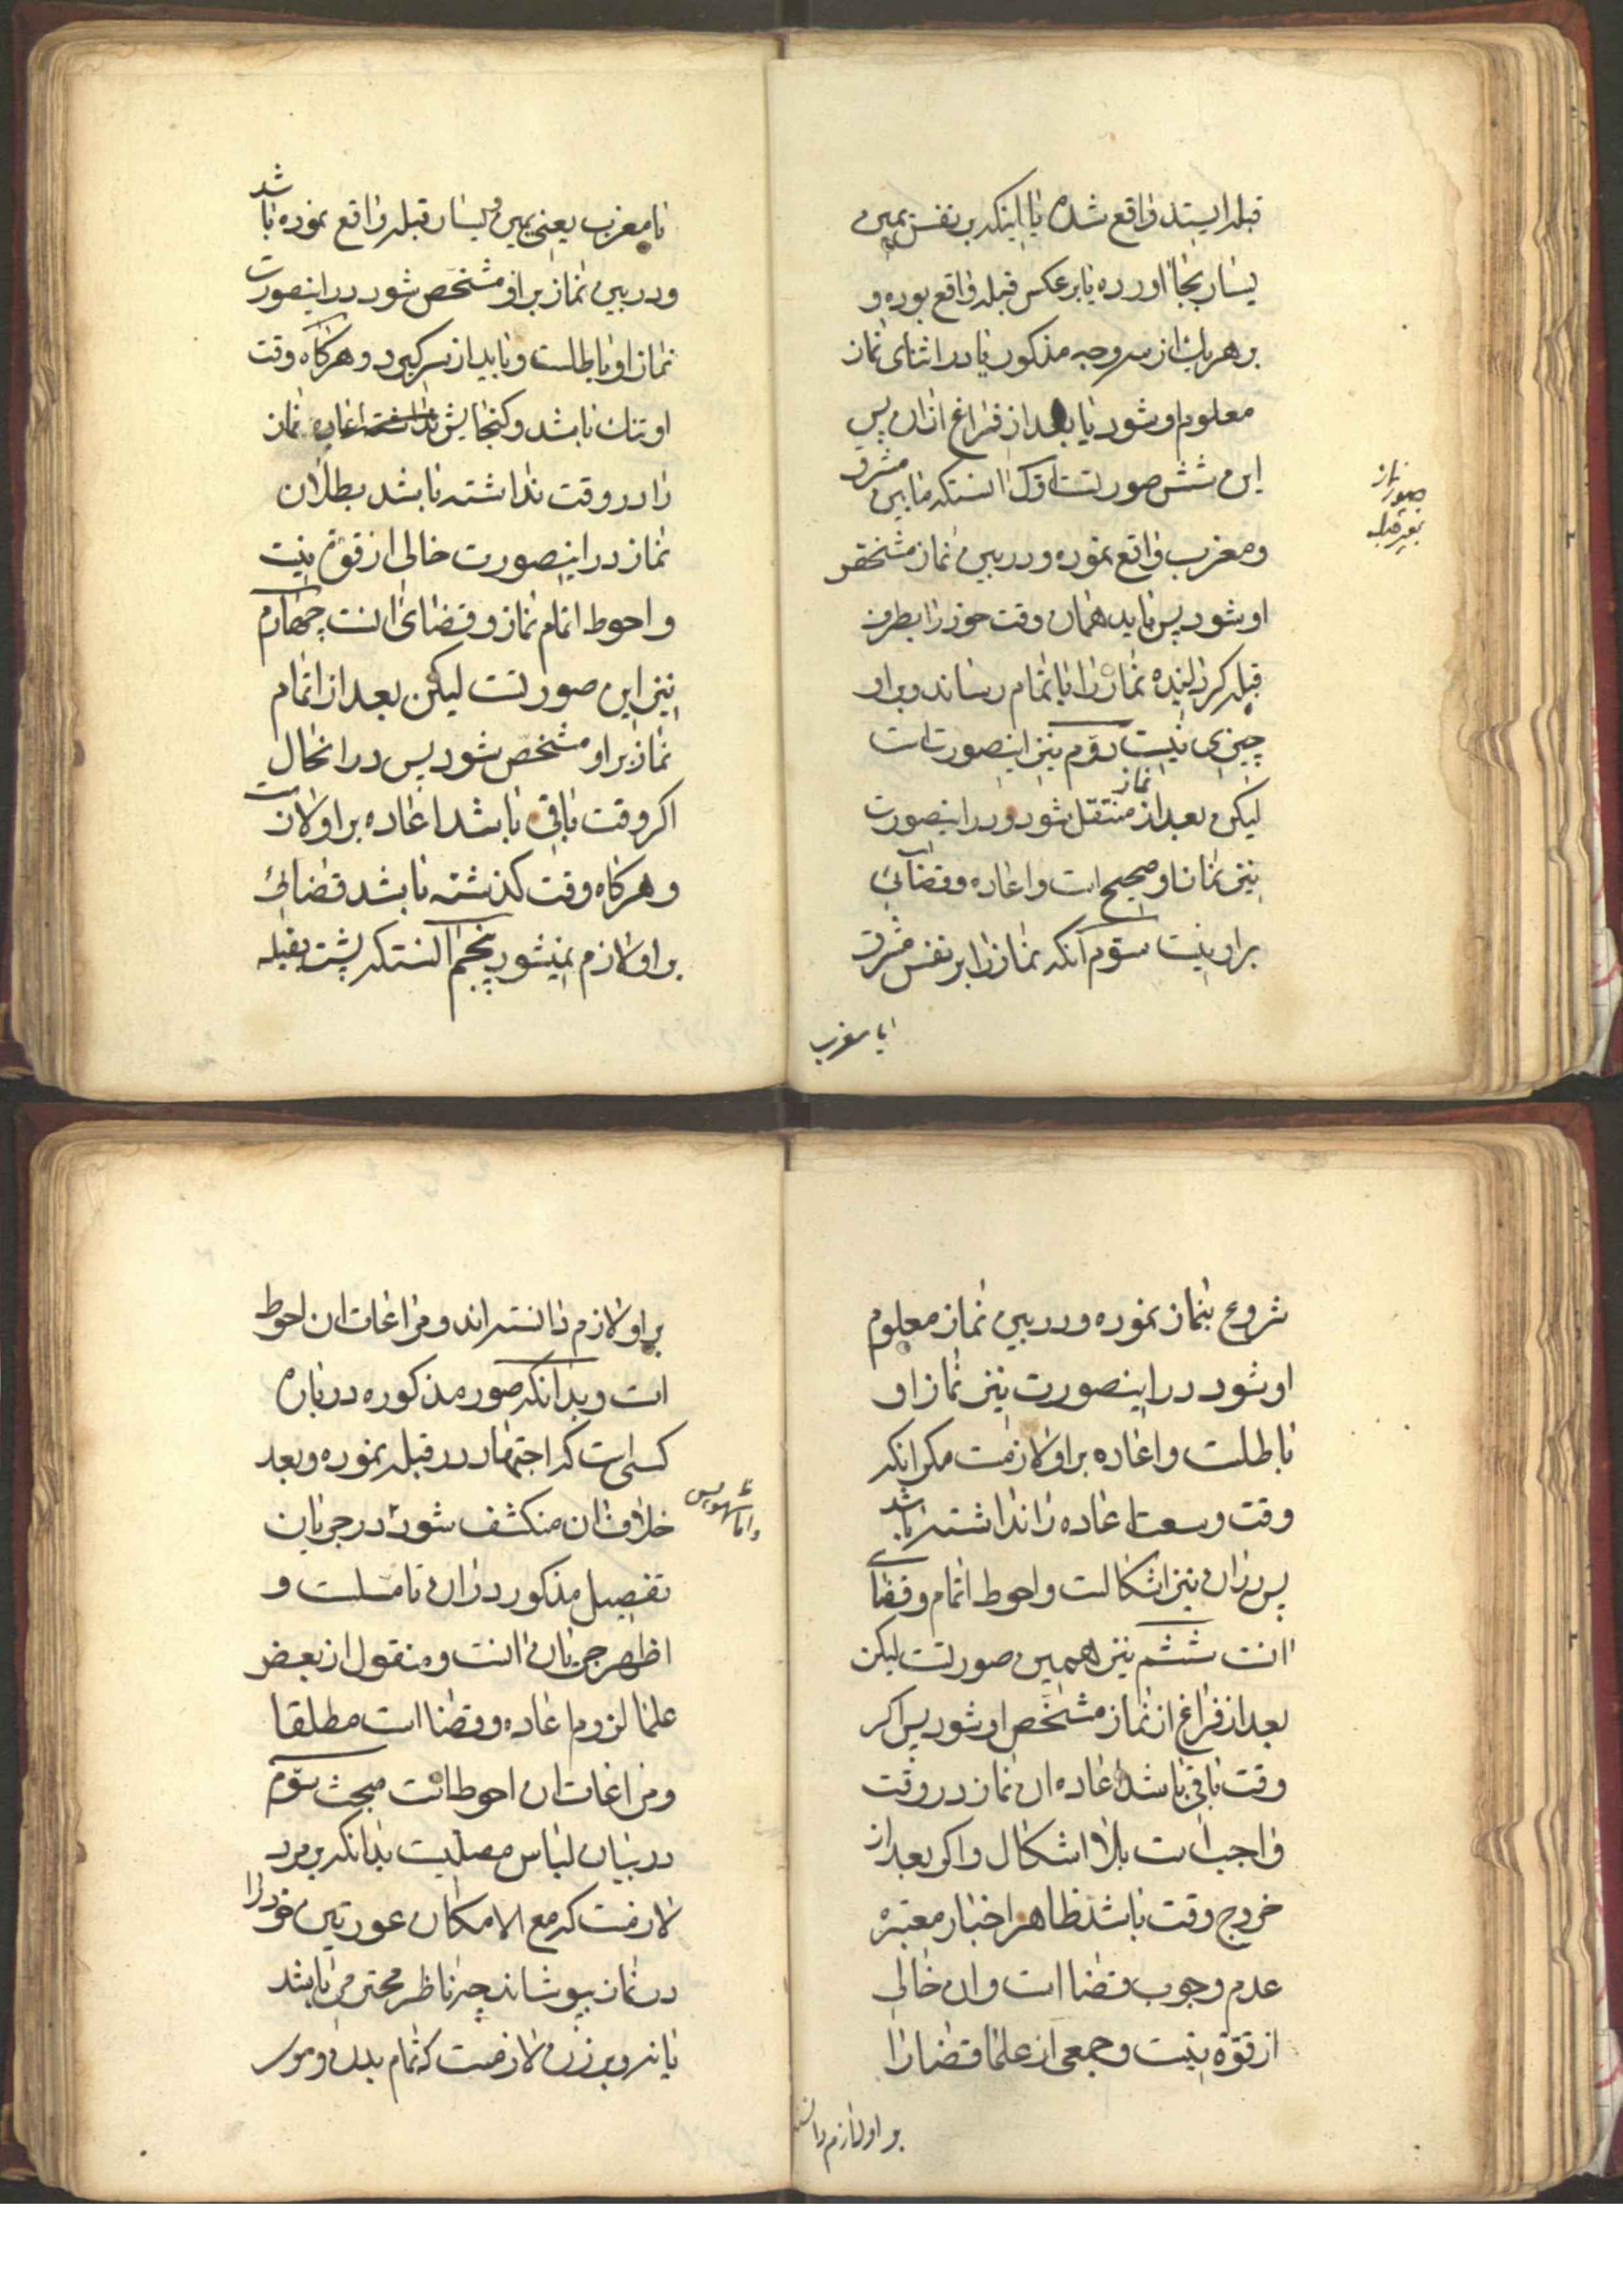 قبله ایستد واقع شده یا اینکه بر نفس یمین
یسار بجا آورده یا بر عکس قبله واقع بوده و
بر هر یك از سه وجه مذکور یا در اثنای نماز
معلوم او شود یا بعد از فراغ از ان پس
این شش صورتست اول انستکه مابین مشرق
صور نماز
بغیر قبله
و مغرب واقع نموده و در بین نماز مشخص
او شود پس باید همان وقت خود را بطرف
قبله کرد نماز را باتمام رساند و بر او
چیزی نیست دوّم نیز اینصورت است
لیکن بعد از نماز منتقل شود و در اینصورت
نیز نماز او صحیح است و اعاده و قضائی
بر او نیست سوّم آنکه نماز را بر نفس مشرق
یا مغرب
یا مغرب یعنی یمین و یسار قبله واقع نموده باشد
و در بین نماز بر او مشخّص شود در اینصورت
نماز او باطلست و باید از سر گیرد و هرگاه وقت
او تنك باشد و گنجایش اعاده نماز
را در وقت نداشته باشد بطلان
نماز در اینصورت خالی از قوة نیست
و احوط اتمام نماز و قضای انست چهارم
نیز این صورتست لیکن بعد از اتمام
نماز بر او مشخّص شود پس در انحال
اکر وقت باقی باشد اعاده بر او لازمست
و هرکاه وقت کذشته باشد قضائی
بر او لازم نمیشود پنجم آنستکه پشت بقبله
شروع بنماز نموده و در بین نماز معلوم
او شود در اینصورت نیز نماز او
باطلست و اعاده بر او لازمست مکر انکه
وقت وسعت اعاده را نداشته باشد
پس دران نیز اشکالست و احوط اتمام و قضای
انست ششم نیز همین صورتست لیکن
بعد از فراغ از نماز مشخّص او شود پس اکر
وقت باقی باشد اعاده ان نماز در وقت
واجب است بلا اشکال و اکر بعد از
خروج وقت باشد ظاهر اخبار معتبره
عدم وجوب قضا است و ان خالی
از قوّة نیست و جمعی از علما قضا را
بر او لازم دانسته
بر او لازم دانسته اند و مراعات ان احوط
است و بدانکه صور مذکوره در باره
کسی است که اجتهاد در قبله نموده و بعد
خلاف ان منکشف شود در جریان
تفصیل مذکور دران تاملست و
اظهر جریان انست و منقول از بعض
علما لزوم اعاده و قضا است مطلقا
و مراعات ان احوط است مبحث سوّم
در بیان لباس مصلیست بدانکه بر مرد
لازمست که مع الامکان عورتین خود را
در نماز بپوشاند چه ناظر محترمی باشد
یا نه و بر زن لازمست که تمام بدن و موی